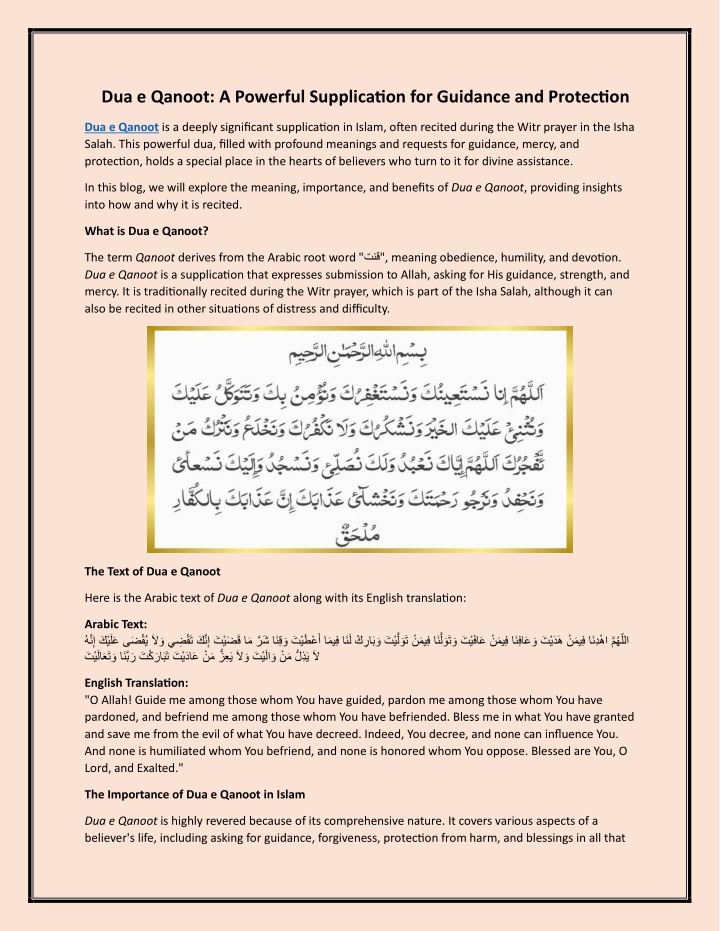 Dua e Qanoot: A Powerful Supplication for Guidance and Protection
Dua e Qanoot is a deeply significant supplication in Islam, often recited during the Witr prayer in the Isha
Salah. This powerful dua, filled with profound meanings and requests for guidance, mercy, and
protection, holds a special place in the hearts of believers who turn to it for divine assistance.
In this blog, we will explore the meaning, importance, and benefits of Dua e Qanoot, providing insights
into how and why it is recited.
What is Dua e Qanoot?
The term Qanoot derives from the Arabic root word "قنت", meaning obedience, humility, and devotion.
Dua e Qanoot is a supplication that expresses submission to Allah, asking for His guidance, strength, and
mercy. It is traditionally recited during the Witr prayer, which is part of the Isha Salah, although it can
also be recited in other situations of distress and difficulty.
بِسْمِ اللهِ الرَّحْمٰنِ الرَّحِيْمِ
اَللّٰهُمَّ اِنا نَسْتَعِينُكَ وَنَسْتَغْفِرُكَ وَنُؤْمِنُ بِكَ وَنَتَوَكَّلُ عَلَيْكَ
وَنُثْنِئْ عَلَيْكَ الخَيْرَ وَنَشْكُرُكَ وَلَا نَكْفُرُكَ وَنَخْلَعُ وَنَتْرُكَ مَنْ
يَّفْجُرُكَ اَللّٰهُمَّ اِيَّاكَ نَعْبُدُ وَلَكَ نُصَلِّئْ وَنَسْجُدُ وَاِلَيْكَ نَسْعأئ
وَنَحْفِدُ وَنَرْجُو رَحْمَتَكَ وَنَخْشآئ عَذَابَكَ اِنَّ عَذَابَكَ بِالكُفَّارِ
مُلْحَقٌ
The Text of Dua e Qanoot
Here is the Arabic text of Dua e Qanoot along with its English translation:
Arabic Text:
اللَّهُمَّ اهْدِنَا فِيمَنْ هَدَيْتَ وَعَافِنَا فِيمَنْ عَافَيْتَ وَتَوَلَّنَا فِيمَنْ تَوَلَّيْتَ وَبَارِكْ لَنَا فِيمَا أَعْطَيْتَ وَقِنَا شَرَّ مَا قَضَيْتَ إِنَّكَ تَقْضِي وَلاَ يُقْضَى عَلَيْكَ إِنَّهُ
لاَ يَذِلُّ مَنْ وَالَيْتَ وَلاَ يَعِزُّ مَنْ عَادَيْتَ تَبَارَكْتَ رَبَّنَا وَتَعَالَيْتَ
English Translation:
"O Allah! Guide me among those whom You have guided, pardon me among those whom You have
pardoned, and befriend me among those whom You have befriended. Bless me in what You have granted
and save me from the evil of what You have decreed. Indeed, You decree, and none can influence You.
And none is humiliated whom You befriend, and none is honored whom You oppose. Blessed are You, O
Lord, and Exalted."
The Importance of Dua e Qanoot in Islam
Dua e Qanoot is highly revered because of its comprehensive nature. It covers various aspects of a
believer's life, including asking for guidance, forgiveness, protection from harm, and blessings in all that